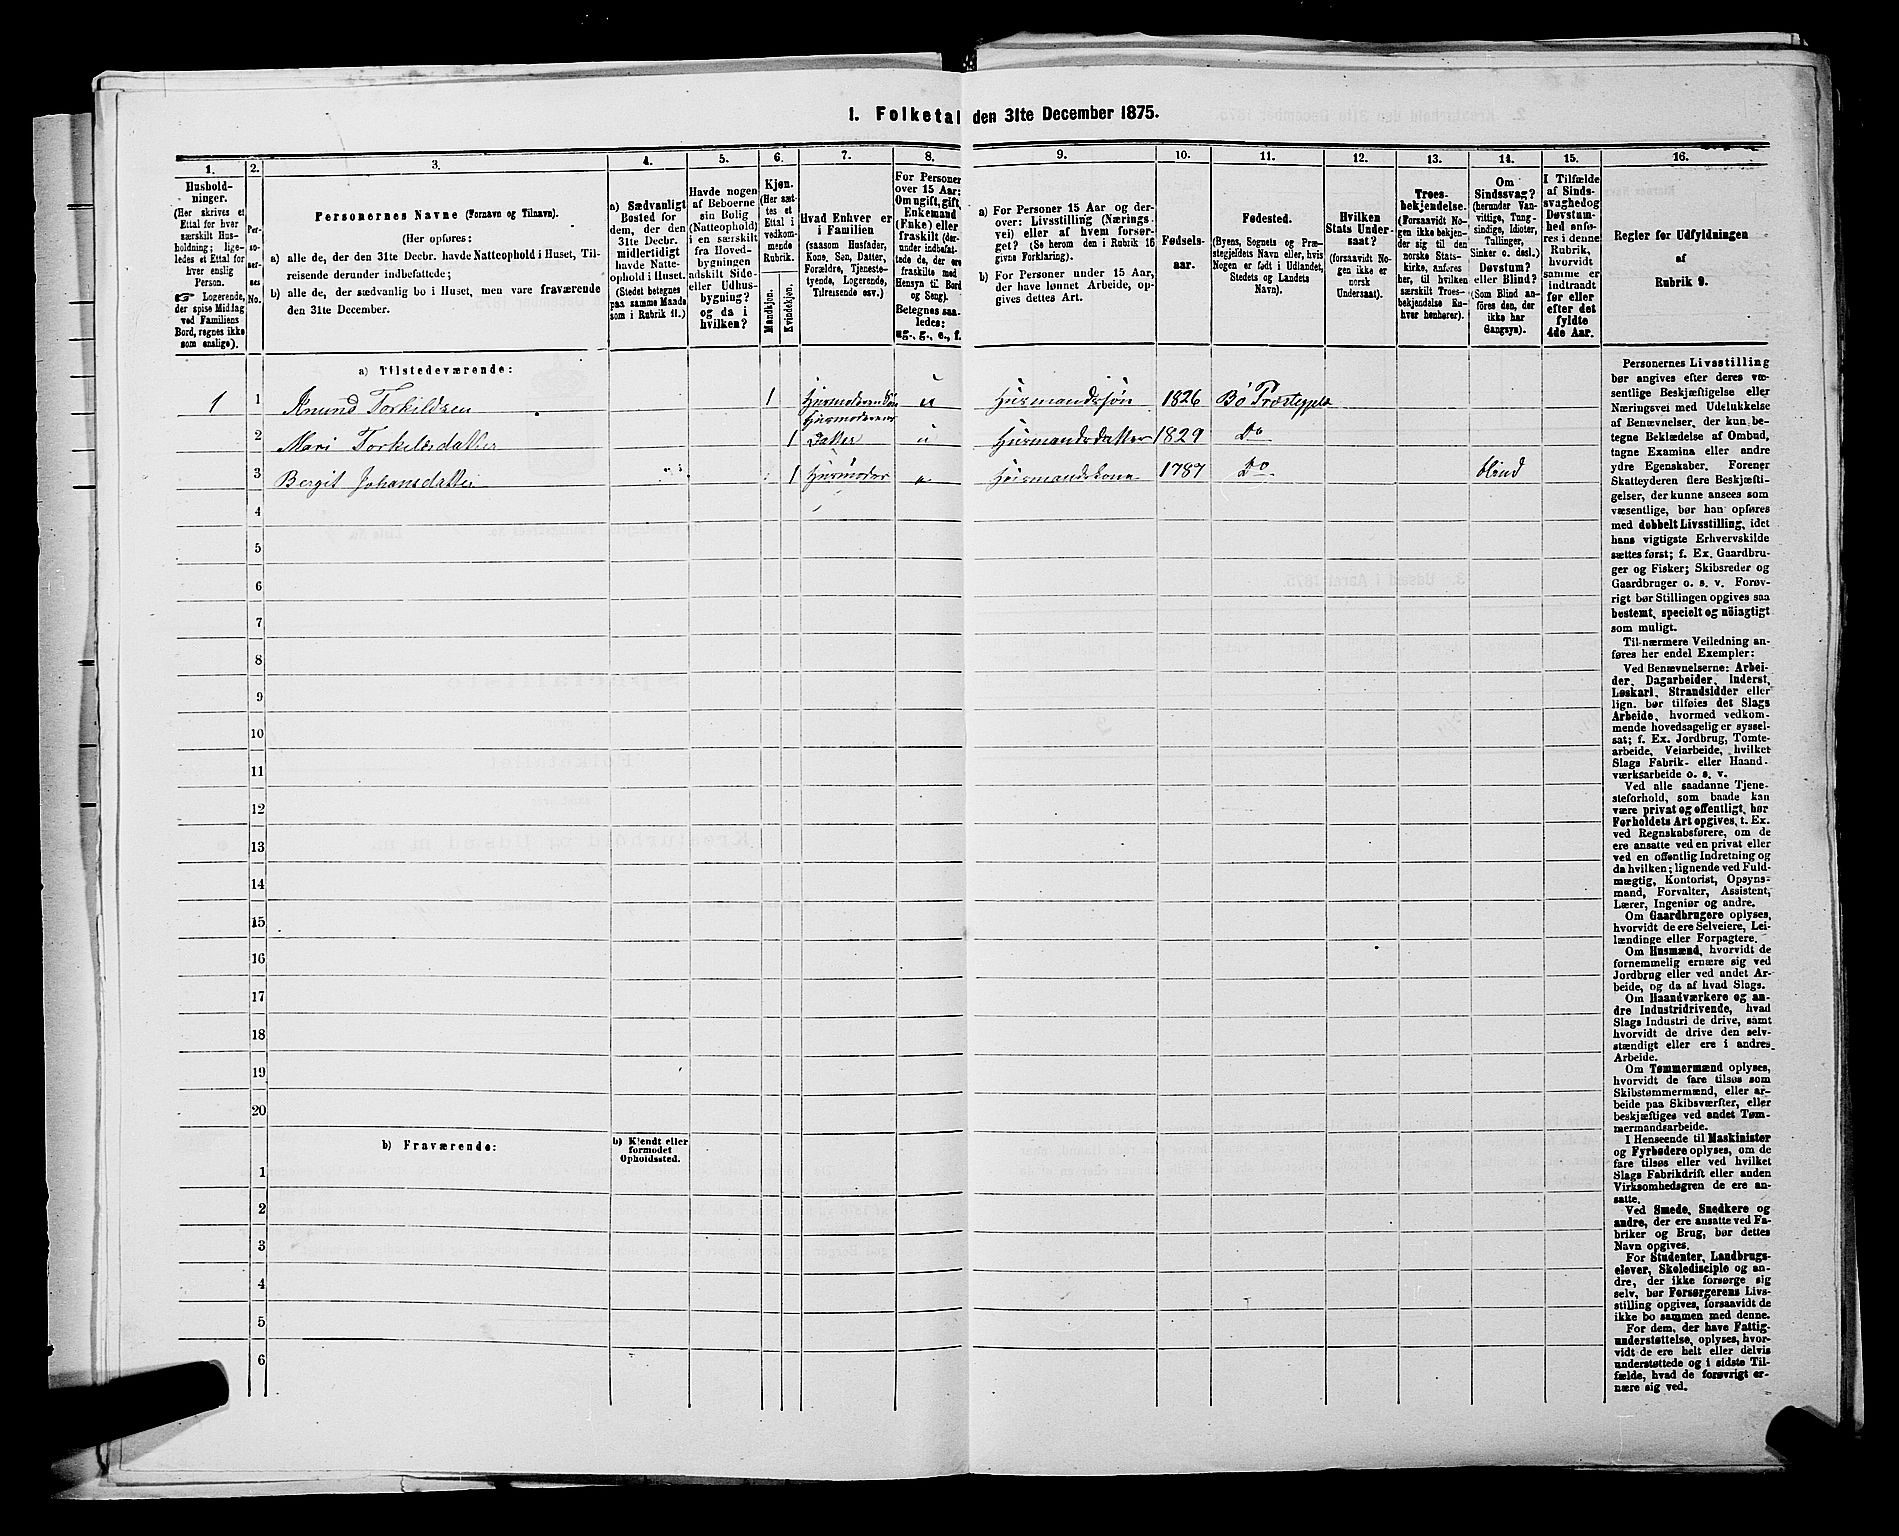 1. Folketal den 31te December 1875.
1.
2.
3.
4.
5.
6.
7.
8.
9.
10.
11.
12.
13.
14.
15.
16.
Hushold-
ninger.
(Her skrives et
Ettal for hver
særskilt Hus-
holdning; lige-
ledes et Ettal for
hver enslig
Person.
☞ Logerende,
der spise Middag
ved Familiens
Bord, regnes ikke
som enslige).
Per-
so-
ner-
nes
No.
Personernes Navne (Fornavn og Tilnavn).
(Her opføres:
a) alle de, der den 31te Decbr. havde Natteophold i Huset, Til-
reisende derunder indbefattede;
b) alle de, der sædvanlig bo i Huset, men vare fraværende
den 31te December.
a) Sædvanligt
Bosted for
dem, der den
31te Decbr.
midlertidigt
havde Natte-
ophold i Huset.
(Stedet betegnes
paa samme Maade
som i Rubrik 11.)
Havde nogen
af Beboerne
sin Bolig
(Natteophold)
i en særskilt
fra Hoved-
bygningen
adskilt Side-
eller Udhus-
bygning?
og da i
hvilken?
Kjøn.
(Her sæt-
tes et
Ettal i
vedkom-
mende
Rubrik.
Mandkjøn.
Kvindekjøn.
Hvad Enhver er
i Familien
(saasom Husfader,
Kone, Søn, Datter,
Forældre, Tjeneste-
tyende, Logerende,
Tilreisende osv.)
For Personer
over 15 Aar:
Om ugift, gift,
Enkemand
(Enke) eller
fraskilt (der-
under indbefat-
tede de, der ere
fraskilte med
Hensyn til Bord
og Seng).
Betegnes saa-
ledes:
ug., g., e., f.
a) For Personer 15 Aar og der-
over: Livsstilling (Nærings-
vei) eller af hvem forsør-
get? (Se herom den i Rubrik 16
givne Forklaring).
b) For Personer under 15 Aar,
der have lønnet Arbeide, op-
gives dettes Art.
Fødsels-
aar.
Fødested.
(Byens, Sognets og Præ-
stegjeldets Navn eller, hvis
Nogen er født i Udlandet,
Stedets og Landets
Navn).
Hvilken
Stats Under-
saat?
(forsaavidt No-
gen ikke er
norsk
Undersaat).
Troes-
bekjendelse.
(Forsaavidt No-
gen ikke bekjen-
der sig til den
norske Stats-
kirke, anføres
her, til hvilken
særskilt Troes-
bekjendelse En-
hver henhører).
Om
Sindssvag?
(herunder Van-
vittige, Tung-
sindige, Idioter,
Tullinger,
Sinker o. desl.)
Døvstum?
eller Blind?
(Som Blind an-
føres den, der
ikke har
Gangsyn).
I Tilfælde
af Sinds-
svaghed og
Døvstum-
hed anfø-
res i denne
Rubrik,
hvorvidt
samme er
indtraadt
før eller
efter det
fyldte
4de Aar.
Regler før Udfyldningen
af
Rubrik 9.
a) Tilstedeværende:
1 1 Knud Torkildsen 1 u Husmandssøn 1826 Bø Præstegjeld
2 Mari Torkildsdatter 1 Datter u Husmandsdatter 1829 Do
3 Bergit Johansdatter 1 Husmoder e Husmandskone 1787 Do blind
4
5
6
7
8
9
10
11
12
13
14
15
16
17
18
19
20
b) Fraværende:
b) Kjendt eller
formodet
Opholdssted.
1
2
3
4
5
6
Personernes Livsstilling
bør angives efter deres væ-
sentlige Beskjæftigelse eller
Næringsvei med Udelukkelse
af Benævnelser, der kun be-
tegne Beklædelse af Ombud,
tagne Examina eller andre
ydre Egenskaber. Forener
Skatteyderen flere Beskjæfti-
gelser, der kunne ansees som
væsentlige, bør han opføres
med dobbelt Livsstilling, idet
hans vigtigste Erhvervskilde
sættes først; f. Ex. Gaardbru-
ger og Fisker; Skibsreder og
Gaardbruger o. s. v. Forøv-
rigt bør Stillingen opgives saa
bestemt, specielt og nöiagtigt
som muligt.
Til nærmere Veiledning an-
føres her endel Exempler:
Ved Benævnelserne: Arbei-
der, Dagarbeider, Inderst,
Løskarl, Strandsidder eller
lign. bør tilføies det Slags
Arbeide, hvormed vedkom-
mende hovedsagelig er syssel-
sat; f. Ex. Jordbrug, Tomte-
arbeide, Veiarbeide, hvilket
Slags Fabrik- eller Haand-
værksarbeide o. s. v.
Ved alle saadanne Tjene-
steforhold, som baade kan
være privat og offentligt, bør
Forholdets Art opgives, t. Ex.
ved Regnskabsførere, om de
ere ansatte ved en privat eller
ved en offentlig Indretning og
da hvilken; lignende ved Fuld-
mægtig, Kontorist, Opsyns-
mand, Forvalter, Assistent,
Lærer, Ingeniør og andre.
Om Gaardbrugere oplyses,
hvorvidt de ere Selveiere, Lei-
lændinge eller Forpagtere.
Om Husmænd, hvorvidt de
fornemmelig ernære sig ved
Jordbrug eller ved andet Ar-
beide, og da af hvad Slags.
Om Haandværkere og an-
dre Industridrivende, hvad
Slags Industri de drive, samt
hvorvidt de drive den selv-
stændigt eller ere i andres
Arbeide.
Om Tømmermænd oplyses,
hvorvidt de fare tilsøs som
Skibstømmermænd, eller ar-
beide paa Skibsværfter, eller
beskjæftiges ved andet Tøm-
mermandsarbeide.
I Henseende til Maskinister
og Fyrbødere oplyses, om de
fare tilsøs eller ved hvilket
Slags Fabrikdrift eller anden
Virksomhedsgren de ere an-
satte.
Ved Smede, Snedkere og
andre, der ere ansatte ved Fa-
briker og Brug, bør dettes
Navn opgives.
For Studenter, Landbrugs-
elever, Skoledisciple og an-
dre, der ikke forsørge sig
selv, bør Forsørgerens Livs-
stilling opgives, forsaavidt de
ikke bo sammen med denne.
For dem, der have Fattig-
understøttelse, oplyses, hvor-
vidt de ere helt eller delvis
understøttede og i sidste Til-
fælde, hvad de forøvrigt er-
nære sig ved.